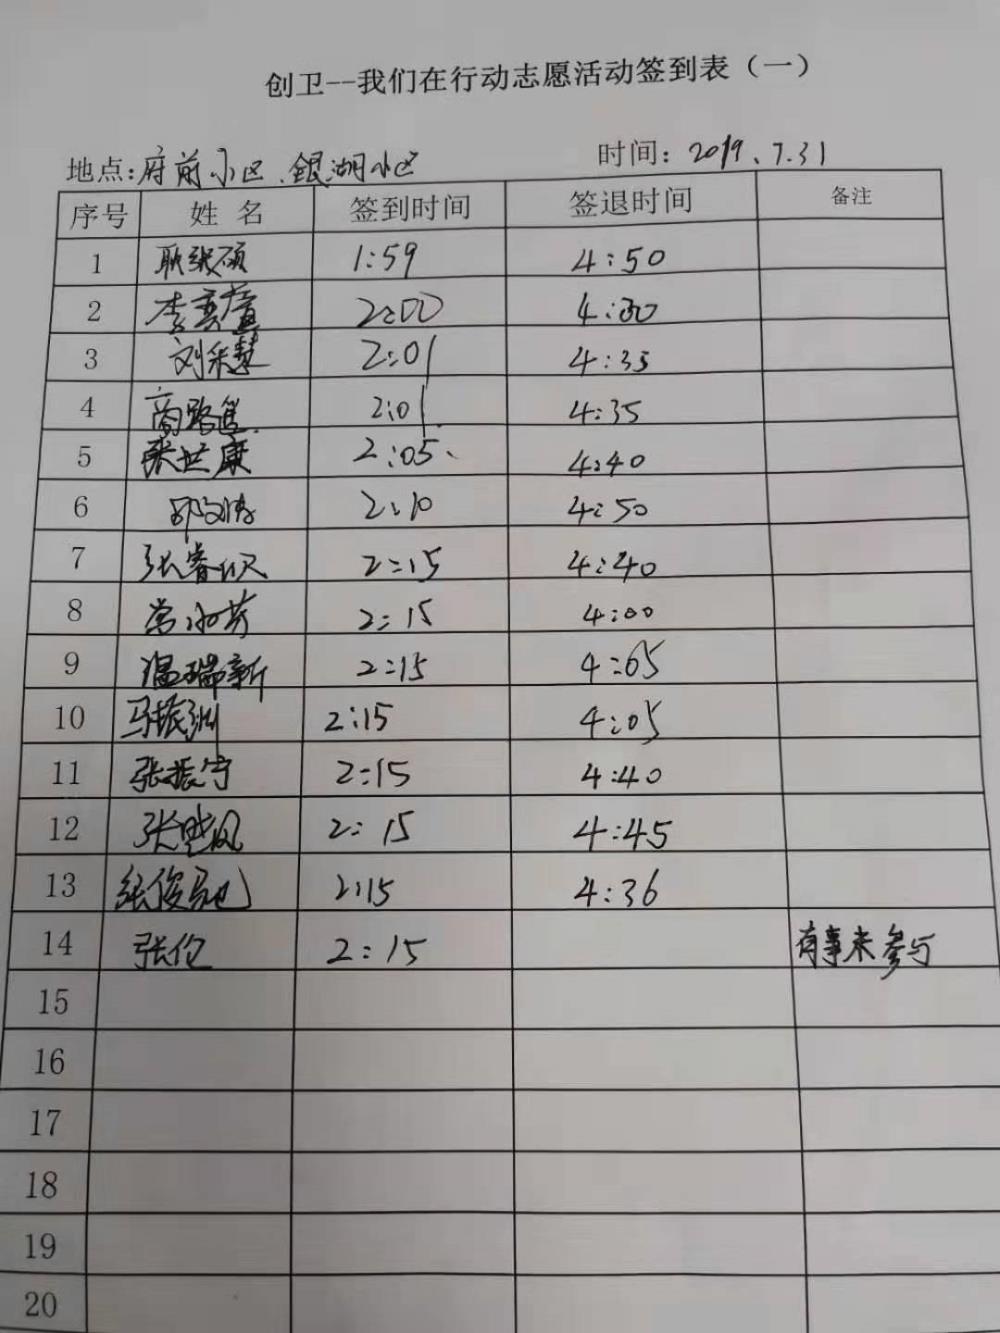 创卫--我们在行动志愿活动签到表（一）
地点:府前小区、银湖小区 时间: 2019、7.31
序号 姓 名 签到时间 签退时间 备注
1 耿张硕 1:59 4:50
2 李 2:00 4:30
3 刘采慧 2:01 4:35
4 商路 2:01 4:35
5 张世康 2:05 4:40
6 2:10 4:50
7 张睿 2:15 4:40
8 常 芳 2:15 4:00
9 温瑞新 2:15 4:05
10 马振洲 2:15 4:05
11 张振宇 2:15 4:40
12 张 2:15 4:45
13 张俊 2:15 4:36
14 张伦 2:15 有事未参与
15
16
17
18
19
20